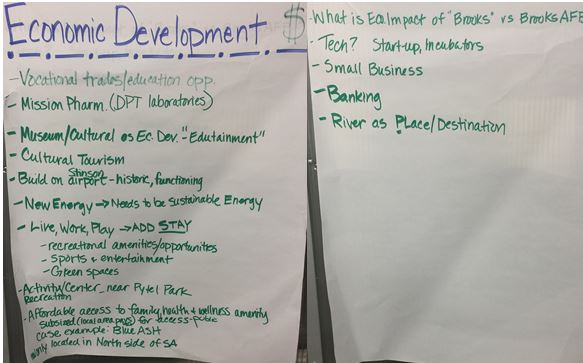 Economic Development $
- Vocational trades/education opp.
- Mission Pharm. (DPT laboratories)
- Museum/Cultural as Ec. Dev. - "Edutainment"
- Cultural Tourism
- Build on Stinson airport - historic, functioning
- New Energy → Needs to be sustainable Energy
- Live, Work, Play → ADD STAY
- recreational amenities/opportunities
- Sports + entertainment
- Green spaces
- Activity/Center near Pytel Park
Recreation
- Affordable access to family, health & wellness amenity
subsized (local area) for access-public
case example: Blue ASH
only located in North side of SA
- What is Eco. Impact of "Brooks" vs Brooks AFB
- Tech? Start-up, Incubators
- Small Business
- Banking
- River as Place/Destination